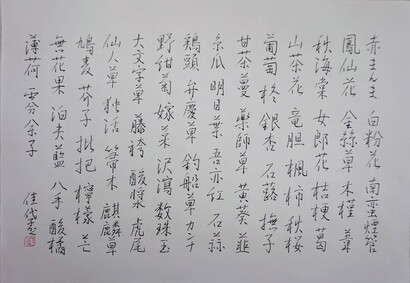 赤まんま 白粉花 南蛮煙管
鳳仙花 金絲草 木槿
秋海棠 女郎花 桔梗 葛
山茶花 竜胆 楓 柿 秋桜
葡萄 柊 銀杏 石蕗 撫子
甘茶蔓 薬師草 黄葵 韮
糸瓜 明日葉 吾亦紅 石蒜
鶏頭 弁慶草 釣船草 カンナ
野紺菊 嫁菜 沢瀉 数珠玉
大文字草 藤袴 酸漿 虎尾
仙人草 独活 箒木 麒麟草
鳩麦 芥子 枇杷 檸檬 芒
無花果 泊夫藍 八手 酸橘
薄荷 零余子